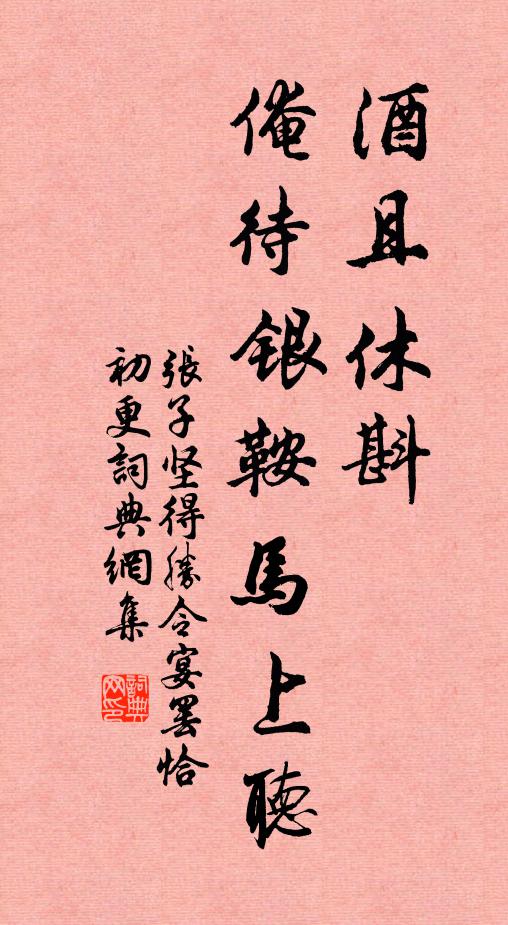 酒且休斟
俺待銀鞍馬上聽
張子坚得勝令宴罷恰
初更詞典網集
詞典
网印